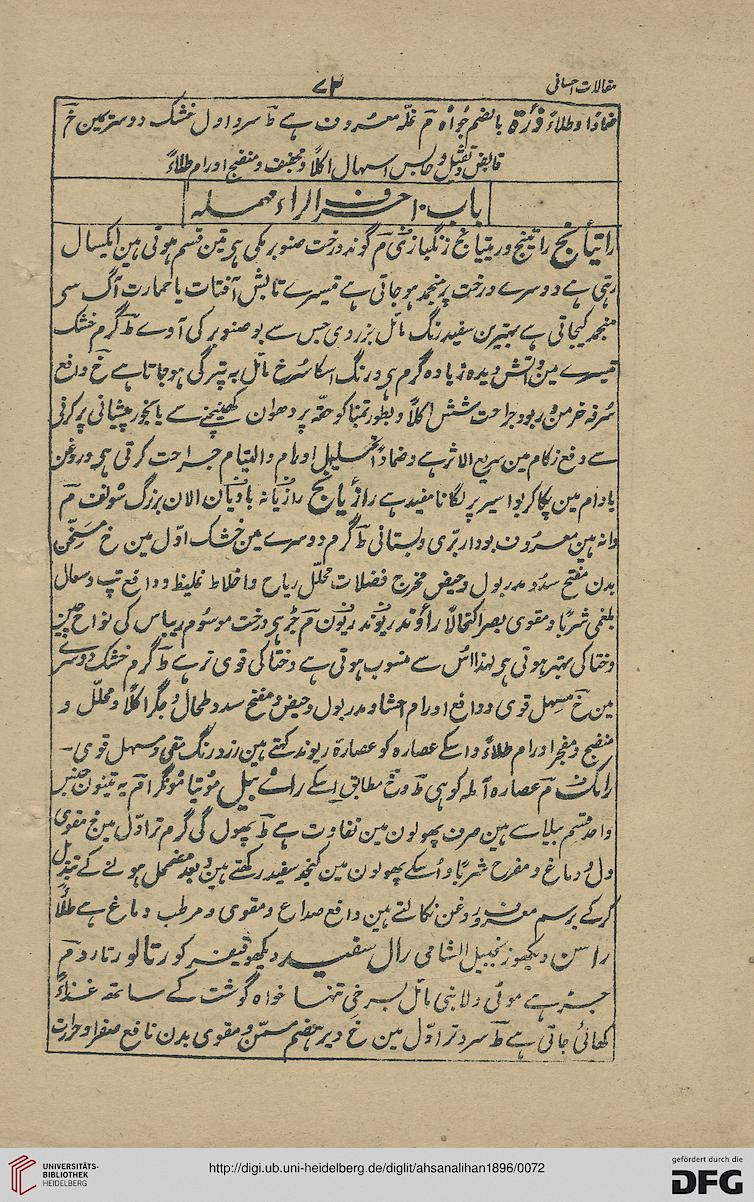 مقالات احسانی
۷۲
ضمادًا وطلاءً ذُرَة بالضم جُواْر م غلّہ معروف ہے ط سرد اول خشک دوسرے مین خ
قابض و ثقیل و حابس اسہال اکلًا و مجفف و منضج اورام طلاءً
باب ۱۰ حرف الراء مہملہ
راتیانج راتینج وریتیانج زنگباری م گوند درخت صنوبر کی ہی تین قسم ہوتی ہین ایک سیال
رہتی ہے دوسرے درخت پر منجمد ہو جاتی ہے تیسرے تابش آفتاب یا حرارت آگ سی
منجمد کیجاتی ہے بہترین سفید رنگ مائل بزردی جس سے بو صنوبر کی آوے ط گرم خشک
تیسرے مین و آتش دیدہ زیادہ گرم ہی ورنگ اسکا سُرخ مائل بہ تیرگی ہو جاتا ہے خ دافع
سُرفہ مزمن و ربو و جراحت شش اکلًا و بطور تمباکو حقّہ پر دھوان کھینچنے سے یا بخور پیشانی پر کرنی
سے دفع زکام مین سریع الاثر ہے و ضمادًا تحلیل اورام والتیام جراحت کرتی ہی و روغن
بادام مین پکا کر بواسیر پر لگانا مفید ہے رازیانج رازیانہ بادیان الان بزرگ سونف م
دانہ ہین معروف بودار برّی و بستانی ط گرم دوسرے مین خشک اوّل مین خ مسخّن
بدن مفتح سدّہ و مدر بول و حیض و مخرج فضلات محلّل ریاح و اخلاط غلیظ و دافع تپ و سعال
بلغمی شربًا و مقوی بصر اکتحالًا راوند ریوند ریون م جڑ ہی درخت موسوم ریباس کی نواح چین
و ختا کی بہتر ہوتی ہی لہذا اُس سے منسوب ہوتی ہے و ختا کی قوی تر ہے ط گرم خشک دوسرے
مین خ مسہل قوی و دافع اورام احشا و مدر بول و حیض و مفتح سدد طحال و جگر اکلًا و محلّل و
منضج و مفجر اورام طلاءً و اسکے عصارہ کو عصارۂ ریوند کہتے ہین زرد رنگ مقی و مسہل قوی
رامک م عصارہ آملہ کوہی ط و خ مطابق اسکے رائے بیل موتیا موگرا م یہ تینون جنس
واحد قسم بیلا سے ہین صرف پھولون مین تفاوت ہے ط پھول کی گرم تر اوّل مین خ مقوی
دل و دماغ و مفرح شربًا و اُسکے پھولون مین کنجد سفید رکھتے ہین و بعد مضمحل ہونے کے تبدیل
کرکے برسم معروف روغن نکالتے ہین دافع صداع و مقوی و مرطب دماغ ہے طلاءً
راسن دیکھو زنجبیل الشامی رال سفید دیکھو قیقہر کو رتالو رتارو م
جڑ ہے موٹی و لانبی مائل بسرخی تنہا خواہ گوشت کے ساتھ غذاءً
کھائی جاتی ہے ط سرد تر اوّل مین خ دیر ہضم مسمّن و مقوی بدن نافع صفرا و حرارت
UNIVERSITÄTS-
BIBLIOTHEK
HEIDELBERG
http://digi.ub.uni-heidelberg.de/diglit/ahsanalihan1896/0072
gefördert durch die
DFG